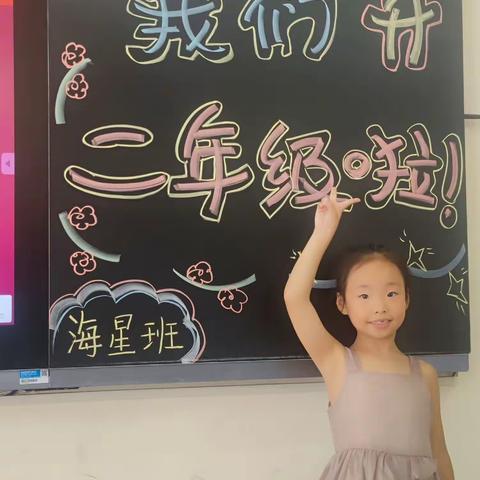 我们升
二年级啦!
海星班